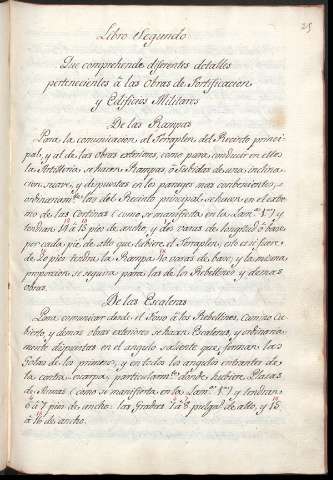 25
Libro Segundo
Que comprehende diferentes detalles
pertenecientes â las Obras de Fortificacion
y Edificios Militares
De las Rampas
Para la comunicacion al Terraplen del Recinto princi-
pal, y al de las obras exteriores, como para conducir en ellos
la Artilleria, se hacen Rampas, o subidas de una inclina-
cion suave, y dispuestas en los parages mas convenientes,
ordinariam.te las del Recinto principal se hacen en el extre-
mo de las Cortinas (como se manifiesta en la Lam.a 1.a) y
tendran 12 â 15 pies de ancho, y dos varas de longitud ô base
por cada pie de alto que tubiere el Terraplen, esto es si fuere
de 20 pies tendra la Rampa 40 varas de base, y la misma
proporcion se seguira para las de los Rebellines y demas
obras.
De las Escaleras
Para comunicar desde el Foso â los Rebellines, Camino Cu-
bierto, y demas obras exteriores se hacen Escaleras, y ordinaria-
mente dispuestas en el angulo saliente que forman las
Golas de los primeros, y en todos los angulos entrantes de
la contra-escarpa, particularm.te donde hubiere Plazas
de Armas (como se manifiesta en la Lam.a 1.a) y tendran
6 â 7 pies de ancho: las Gradas 7 â 8 pulg.s de alto, y 15
â 16 de ancho.